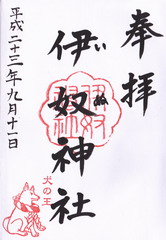 奉拝
伊奴神社
いぬ
平成二十三年九月十一日
犬の王